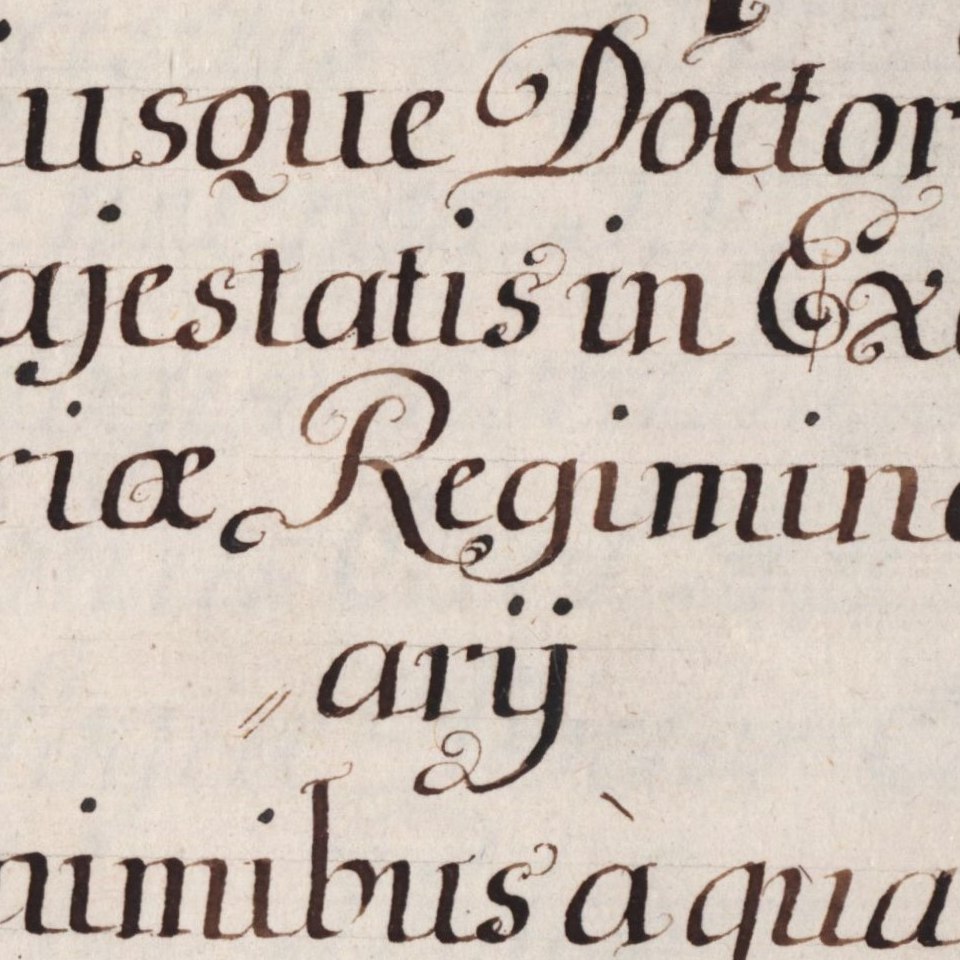 iusque Doctor
ajestatis in Ex
riæ Regimin
arij
nimibus à qua